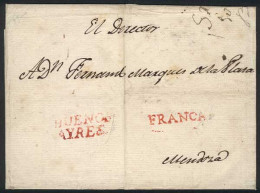 El Director
A Dn Fernando Marques de la Plata
BUENOS
AYRES
FRANCA
Mendoza